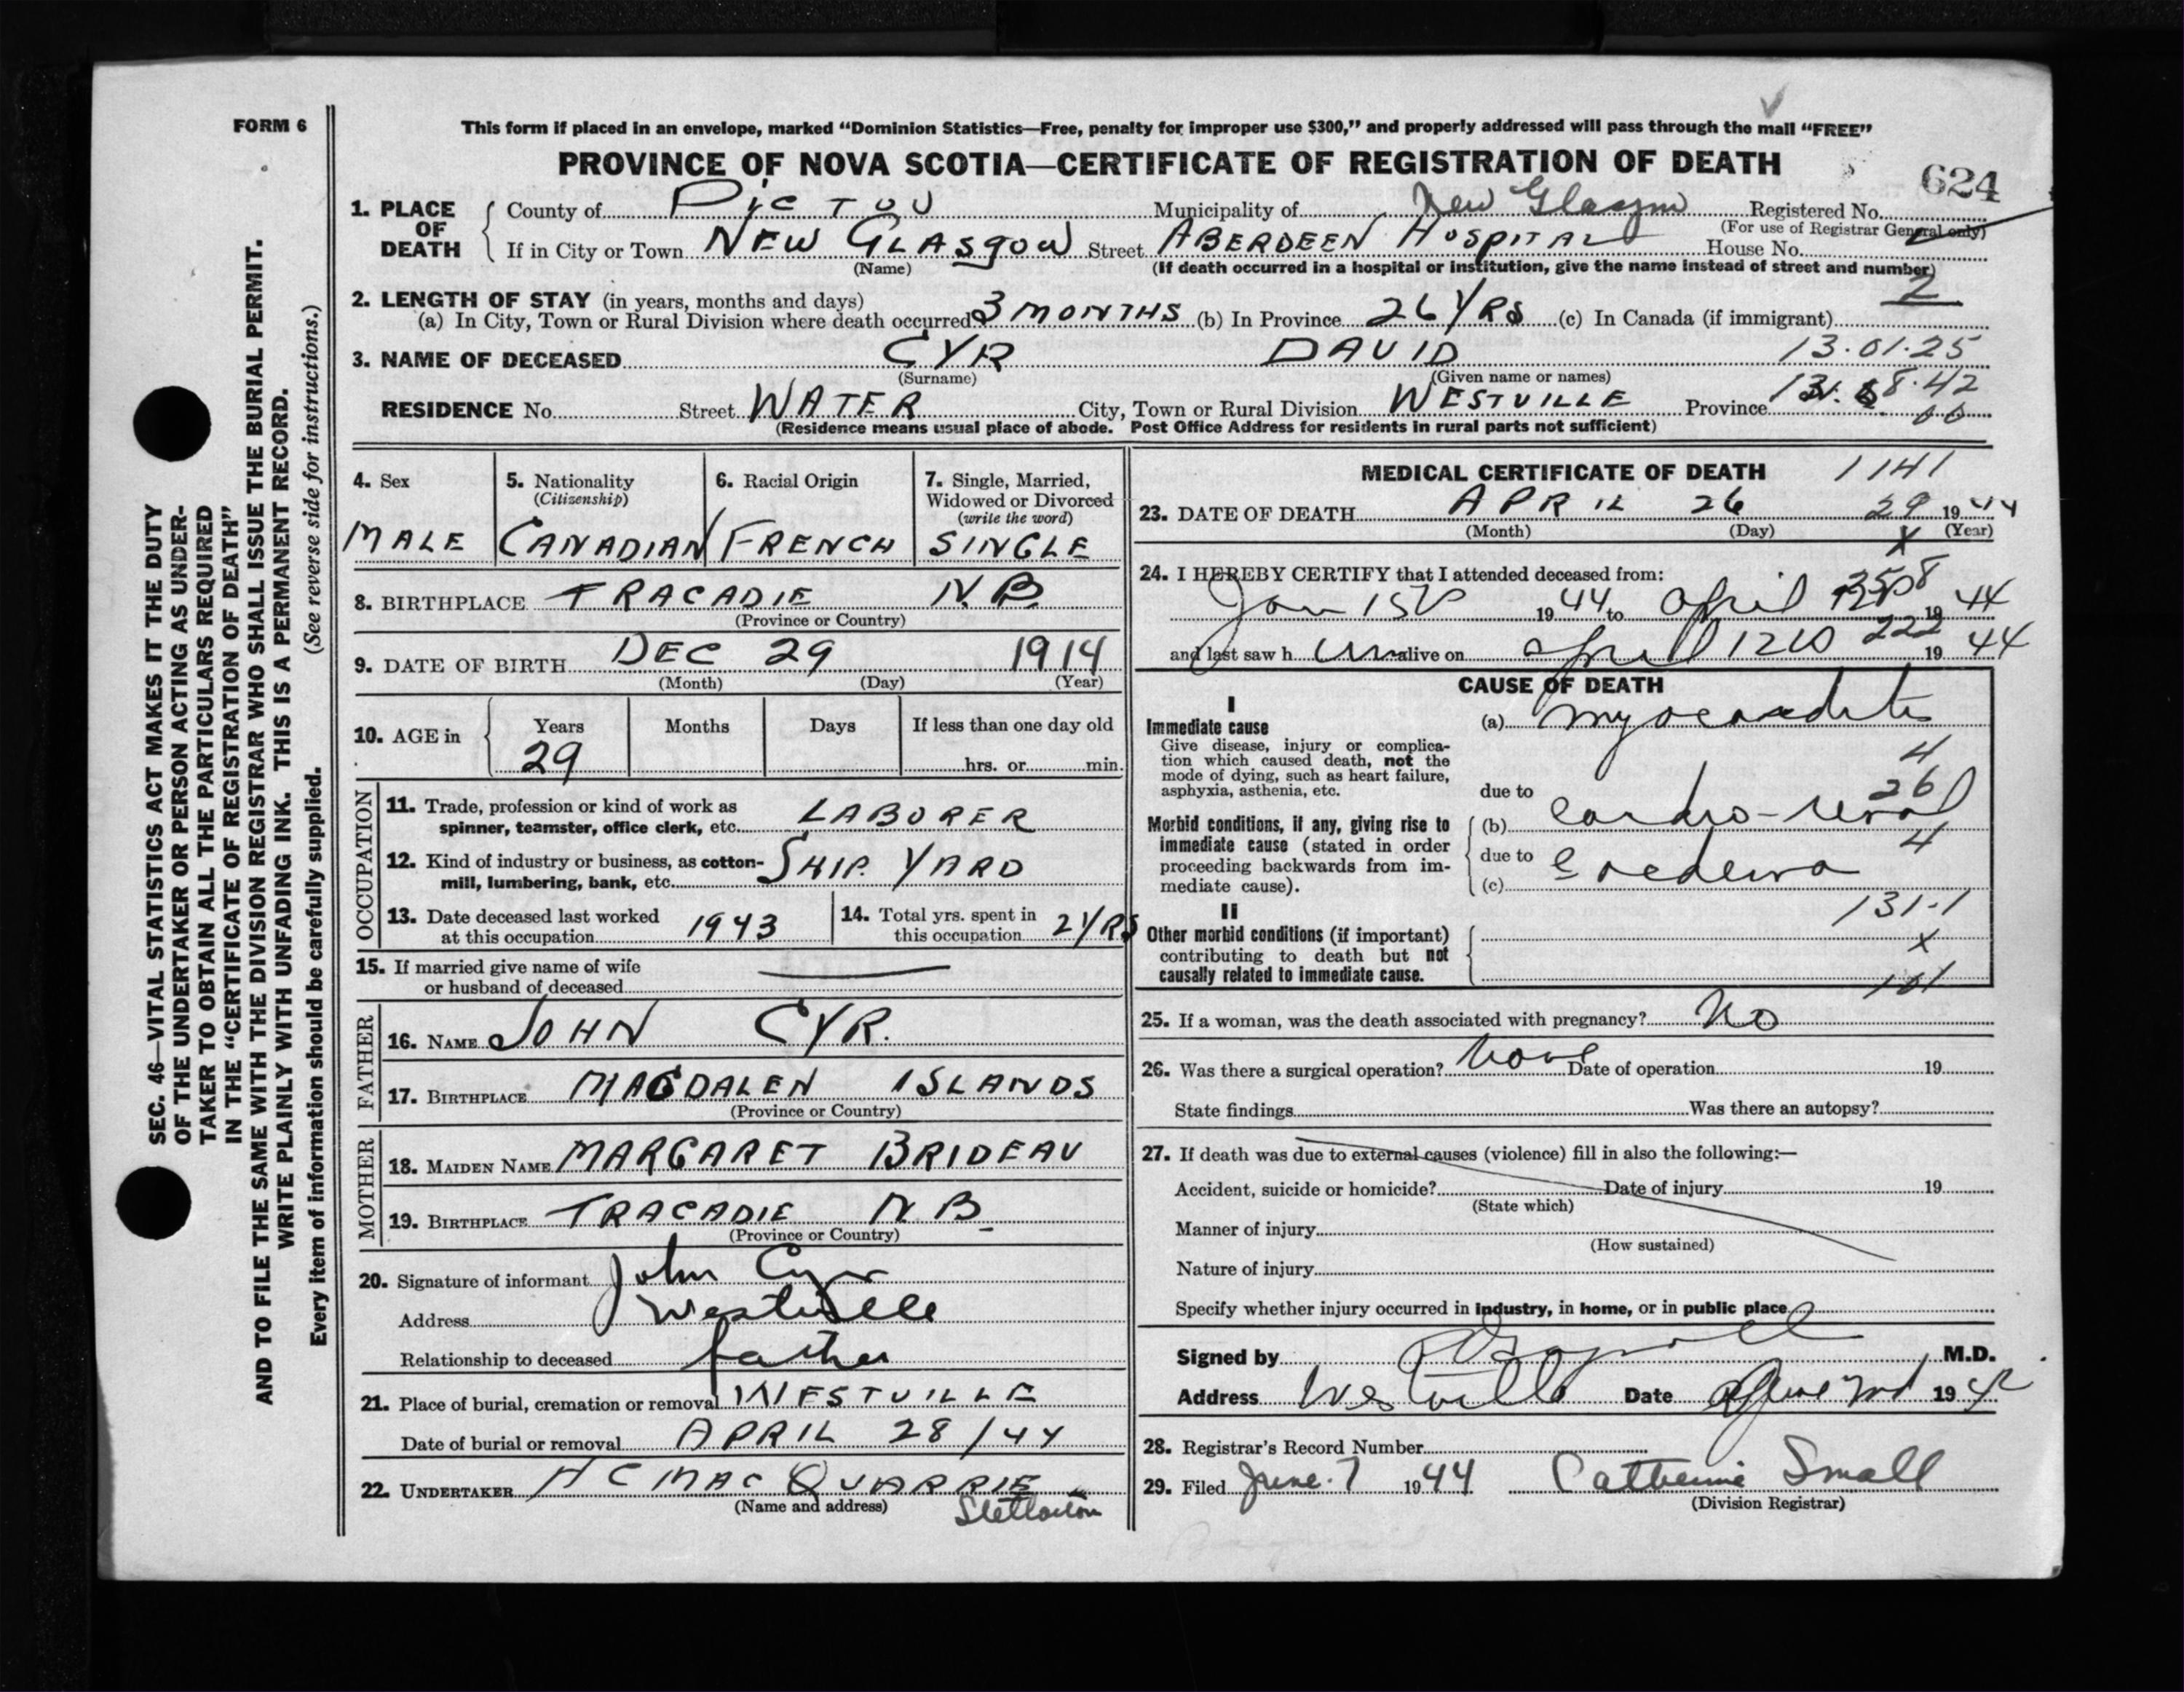 FORM 6
SEC. 46—VITAL STATISTICS ACT MAKES IT THE DUTY
OF THE UNDERTAKER OR PERSON ACTING AS UNDER-
TAKER TO OBTAIN ALL THE PARTICULARS REQUIRED
IN THE "CERTIFICATE OF REGISTRATION OF DEATH"
AND TO FILE THE SAME WITH THE DIVISION REGISTRAR WHO SHALL ISSUE THE BURIAL PERMIT.
WRITE PLAINLY WITH UNFADING INK. THIS IS A PERMANENT RECORD.
Every item of information should be carefully supplied. (See reverse side for instructions.)
This form if placed in an envelope, marked "Dominion Statistics—Free, penalty for improper use $300," and properly addressed will pass through the mail "FREE"
PROVINCE OF NOVA SCOTIA—CERTIFICATE OF REGISTRATION OF DEATH
624
1. PLACE OF DEATH County of PICTOU Municipality of New Glasgow Registered No.
(For use of Registrar General only)
If in City or Town NEW GLASGOW Street ABERDEEN HOSPITAL House No.
(Name) (If death occurred in a hospital or institution, give the name instead of street and number)
2
2. LENGTH OF STAY (in years, months and days)
(a) In City, Town or Rural Division where death occurred 3 MONTHS (b) In Province 26 YRS (c) In Canada (if immigrant)
3. NAME OF DECEASED CYR DAVID 13.01.25
(Surname) (Given name or names)
RESIDENCE No. Street WATER City, Town or Rural Division WESTVILLE Province
(Residence means usual place of abode. Post Office Address for residents in rural parts not sufficient)
4. Sex MALE
5. Nationality (Citizenship) CANADIAN
6. Racial Origin FRENCH
7. Single, Married, Widowed or Divorced (write the word) SINGLE
8. BIRTHPLACE TRACADIE N.B.
(Province or Country)
9. DATE OF BIRTH DEC 29 1914
(Month) (Day) (Year)
10. AGE in Years Months Days If less than one day old
29 hrs. or min.
OCCUPATION
11. Trade, profession or kind of work as
spinner, teamster, office clerk, etc. LABORER
12. Kind of industry or business, as cotton-
mill, lumbering, bank, etc. SHIP YARD
13. Date deceased last worked
at this occupation 1943
14. Total yrs. spent in
this occupation 2 YRS
15. If married give name of wife
or husband of deceased
FATHER
16. NAME JOHN CYR.
17. BIRTHPLACE MAGDALEN ISLANDS
(Province or Country)
MOTHER
18. MAIDEN NAME MARGARET BRIDEAU
19. BIRTHPLACE TRACADIE N.B.
(Province or Country)
20. Signature of informant John Cyr
Address Westville
Relationship to deceased father
21. Place of burial, cremation or removal WESTVILLE
Date of burial or removal APRIL 28/44
22. UNDERTAKER H C MACQUARRIE
(Name and address) Stellarton
MEDICAL CERTIFICATE OF DEATH 1141
23. DATE OF DEATH APRIL 26 29 1944
(Month) (Day) (Year)
X
24. I HEREBY CERTIFY that I attended deceased from:
Jan 1st 1944 to April 19 44
and last saw h im alive on April 19 44
222
CAUSE OF DEATH
I
Immediate cause
Give disease, injury or complica-
tion which caused death, not the
mode of dying, such as heart failure,
asphyxia, asthenia, etc.
(a) myocarditis
4
26
due to
Morbid conditions, if any, giving rise to
immediate cause (stated in order
proceeding backwards from im-
mediate cause).
(b) cardio-renal
4
due to
(c) oedema
131-1
II
Other morbid conditions (if important)
contributing to death but not
causally related to immediate cause.
X
25. If a woman, was the death associated with pregnancy? No
26. Was there a surgical operation? None Date of operation 19
State findings Was there an autopsy?
27. If death was due to external causes (violence) fill in also the following:—
Accident, suicide or homicide? Date of injury 19
(State which)
Manner of injury
(How sustained)
Nature of injury
Specify whether injury occurred in industry, in home, or in public place
Signed by M.D.
Address Westville Date June 2nd 19
28. Registrar's Record Number
29. Filed June 7 1944 Catherine Small
(Division Registrar)